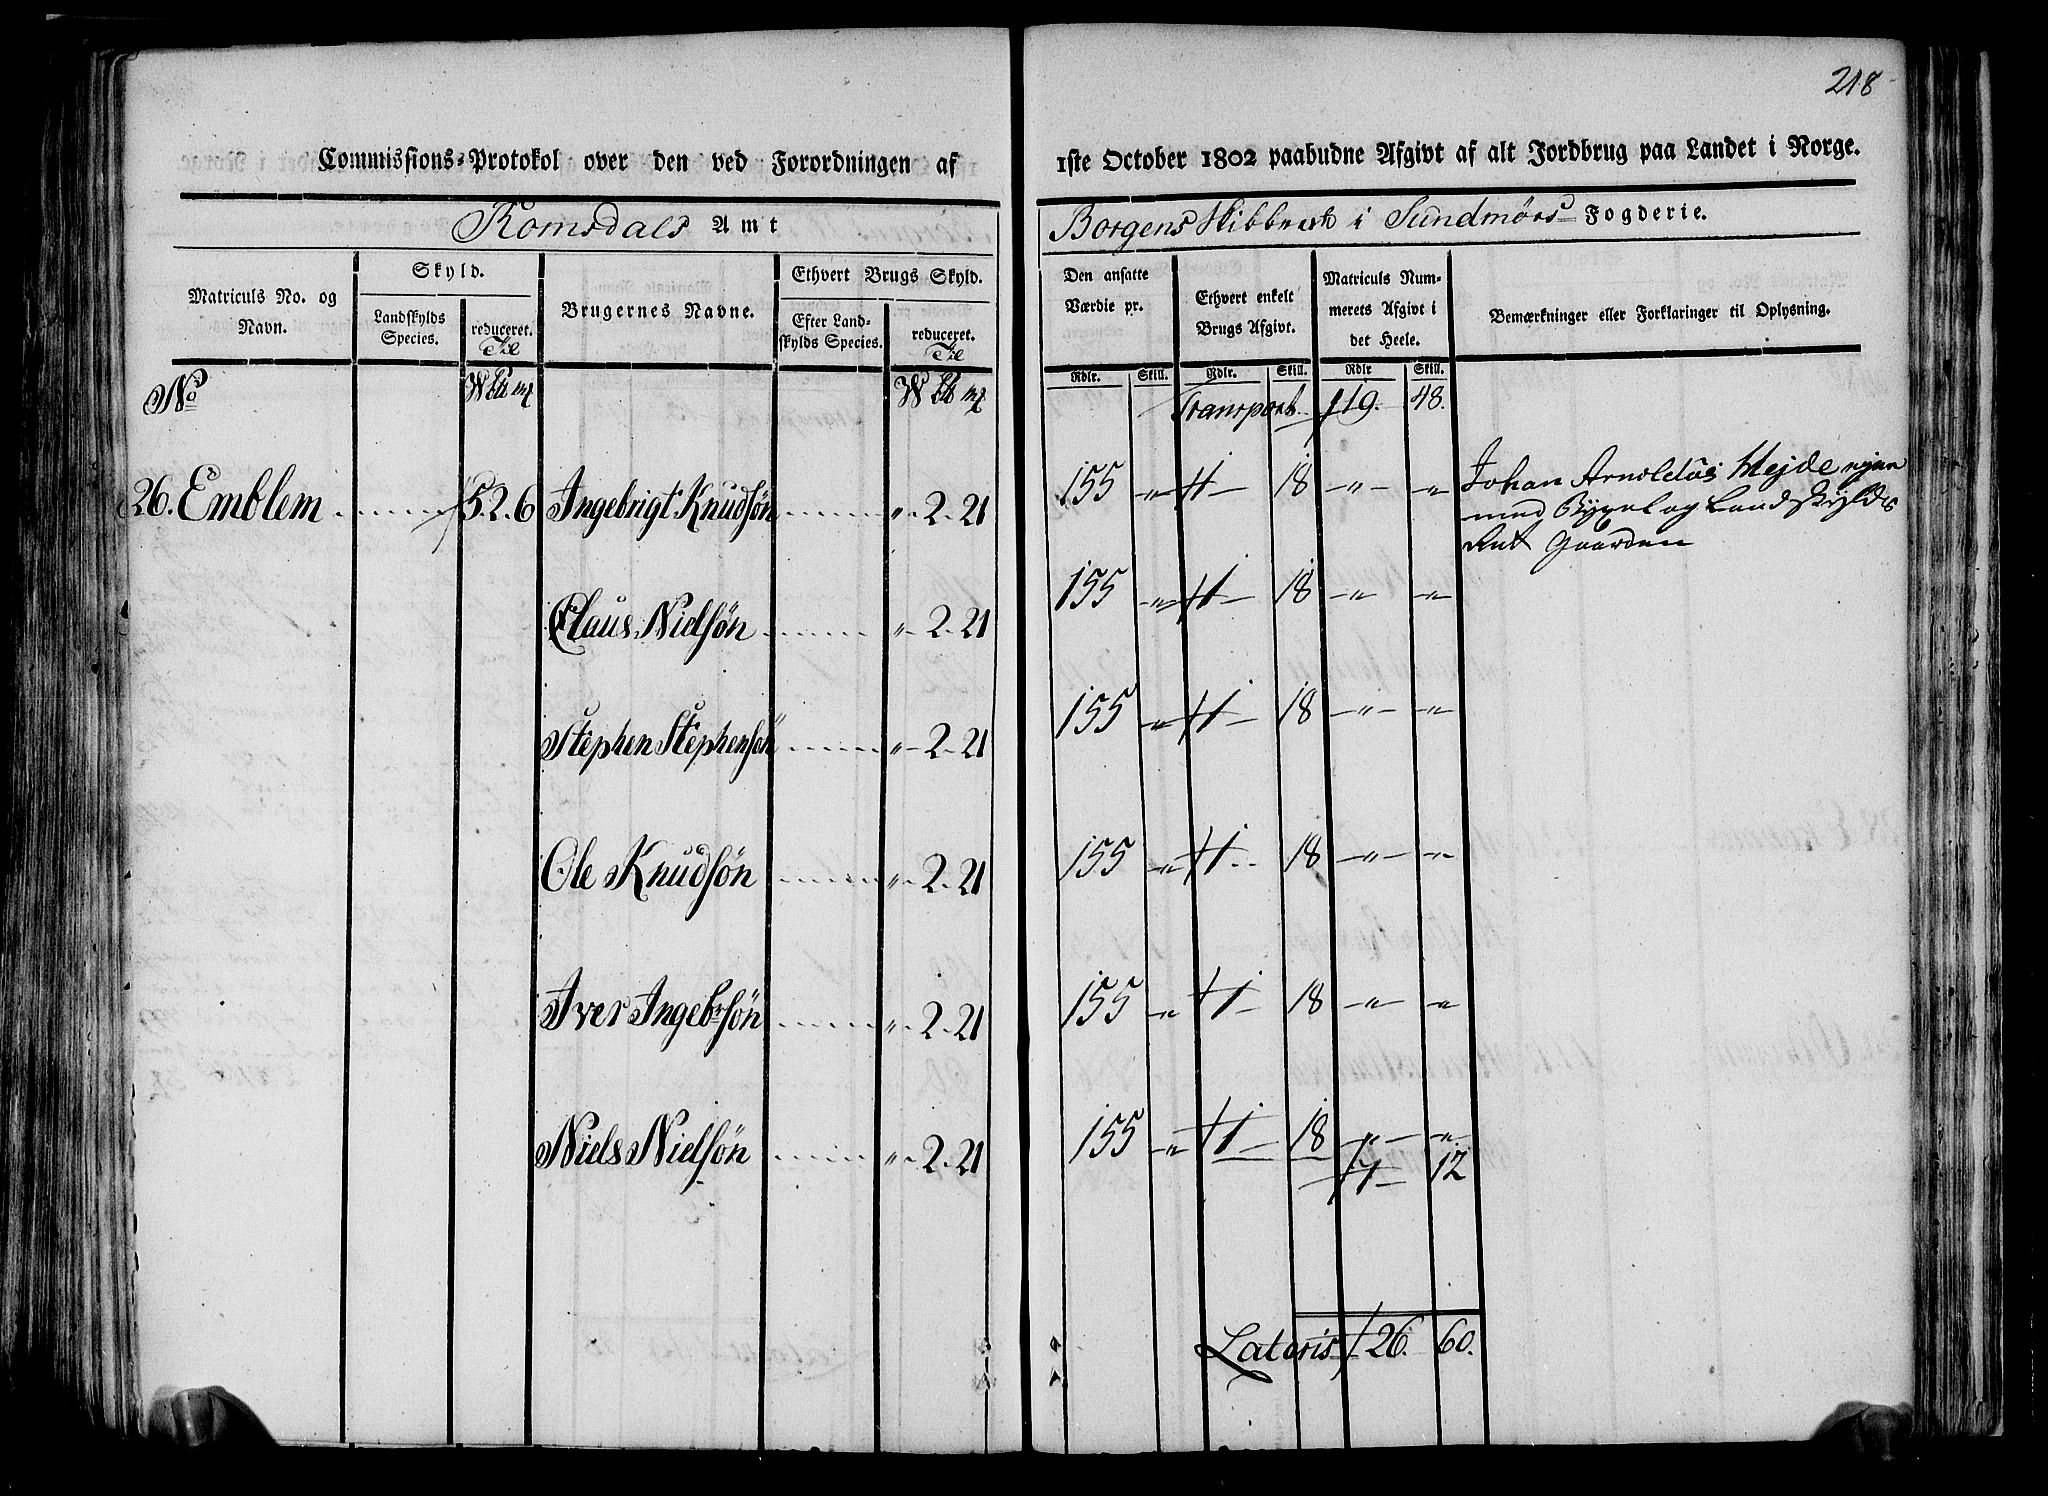 218
Commissions-Protokol over den ved Forordningen af 1ste October 1802 paabudne Afgivt af alt Jordbrug paa Landet i Norge.
Romsdals Amt Borgens Skibbrede i Sundmørs Fogderie.
Matriculs No. og Navn. Skyld. Landskylds Species. reduceret. Brugernes Navne. Ethvert Brugs Skyld. Efter Landskylds Species. reduceret.
Den ansatte Værdie pr. Ethvert enkelt Brugs Afgivt. Matriculs Nummerets Afgivt i det Heele. Bemærkninger eller Forklaringer til Oplysning.
Rdlr. Skill. Rdlr. Skill. Rdlr Skill.
No W W Transport 119. 48.
26. Emblem 5. 2. 6 Ingebrigt Knudsøn „ 2. 21 155 „ 1 18 „ „ Johan Arnoldus Hejde ejer
med Bygsel og Landskylds
Ret Gaarden
Claus Nielsøn „ 2. 21 155 „ 1 18 „ „
Stephen Stephensøn „ 2. 21 155 „ 1 18 „ „
Ole Knudsøn „ 2. 21 155 „ 1 18 „ „
Iver Ingebrsøn „ 2. 21 155 „ 1 18 „ „
Niels Nielsøn „ 2. 21 155 „ 1 18 „ „
7 12
Lateris 126. 60.